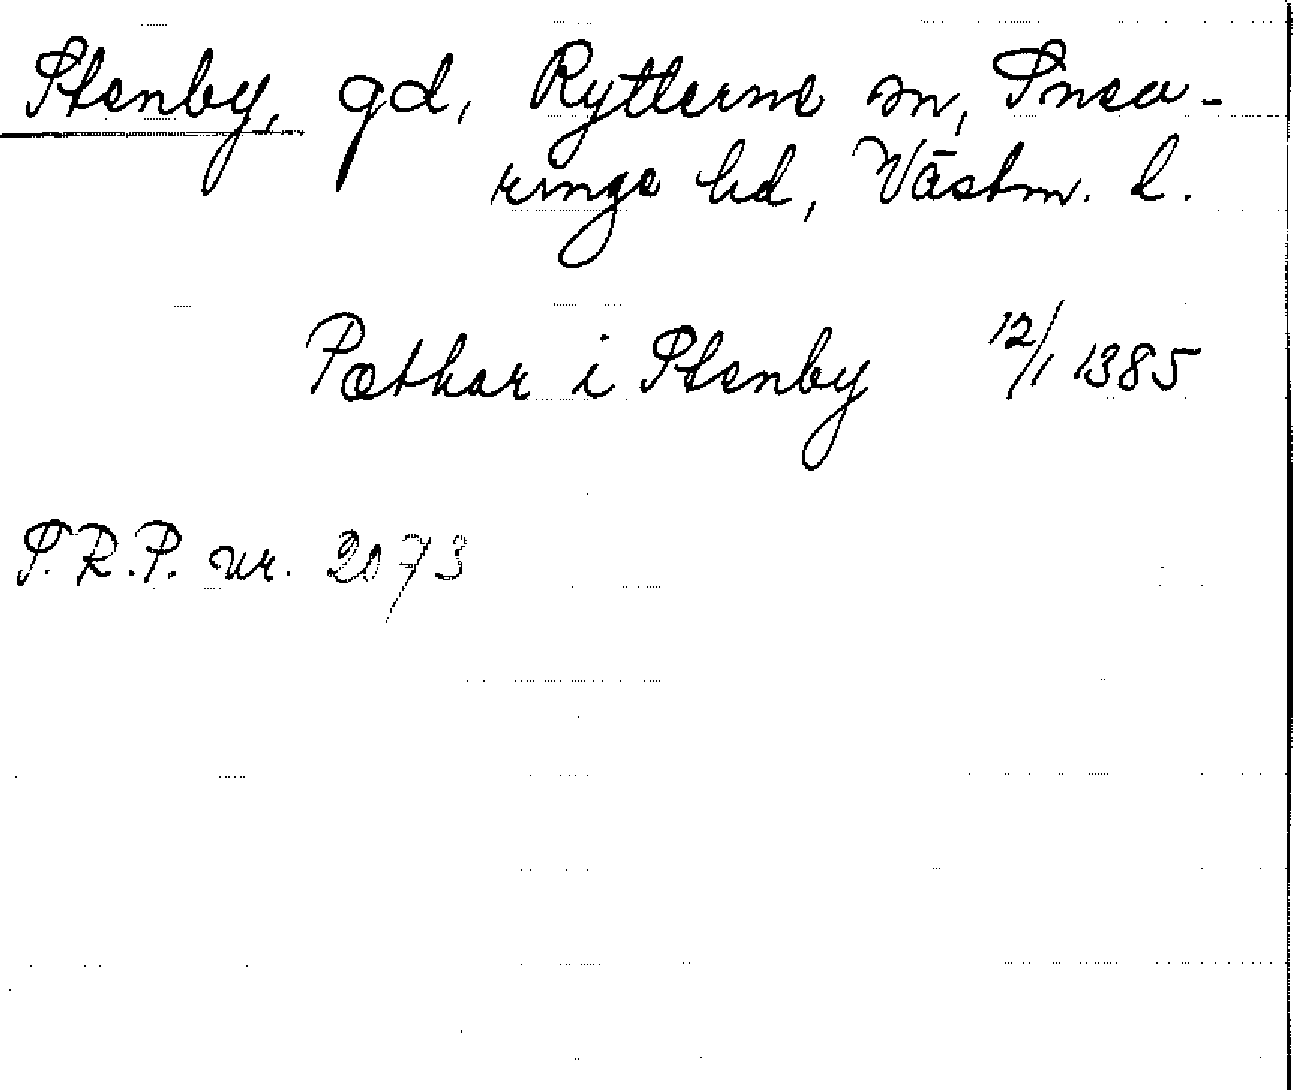 Stenby, gd, Rytterne sn, Snea-
ringe hd, Västm. l.
Pæthar i Stenby 12/1 1385
S.R.P. nr. 2073